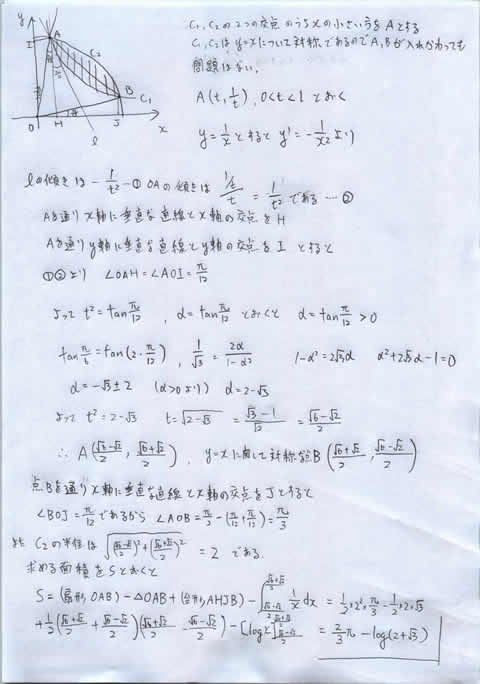 C₁, C₂の2つの交点のうちxの小さい方をAとする
C₁, C₂は y=xについて対称であるのでA, Bが入れかわっても
問題はない。
A(t, 1/t), 0<t<1 とおく
y=1/x とすると y'=-1/x² より
y
I
A
C₂
B
C₁
O
H
J
x
l
lの傾きは -1/t² …① OAの傾きは (1/t)/t = 1/t² である …②
Aを通り x軸に垂直な直線とx軸の交点を H
Aを通りy軸に垂直な直線とy軸の交点を I とすると
①②より ∠OAH=∠AOI=π/12
よって t²=tanπ/12, α=tanπ/12 とおくと α=tanπ/12>0
tanπ/6=tan(2・π/12), 1/√3=2α/(1-α²) 1-α²=2√3α α²+2√3α-1=0
α=-√3±2 (α>0より) α=2-√3
よって t²=2-√3 t=√(2-√3) =(√3-1)/√2 =(√6-√2)/2
∴ A((√6-√2)/2, (√6+√2)/2), y=xに関して対称な点B((√6+√2)/2, (√6-√2)/2)
点Bを通りx軸に垂直な直線とx軸の交点をJとすると
∠BOJ=π/12であるから ∠AOB=π/2-(π/12+π/12)=π/3
また C₂の半径は √(((√6-√2)/2)²+((√6+√2)/2)²) = 2 である.
求める面積をSとおくと
S=(扇形OAB)-△OAB+(台形AHJB)-∫_{(√6-√2)/2}^{(√6+√2)/2} 1/x dx =1/2×2²×π/3-1/2×2×√3
+1/2((√6+√2)/2+(√6-√2)/2)((√6+√2)/2-(√6-√2)/2)-[log x]_{(√6-√2)/2}^{(√6+√2)/2} =2/3π-log(2+√3)